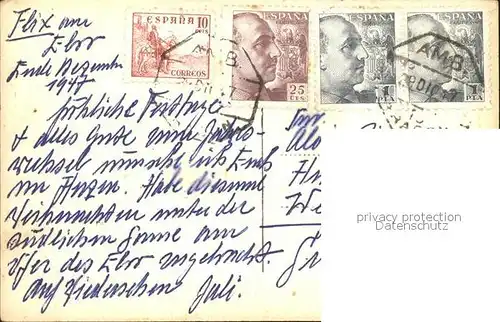 Flix am
Ebro
Ende Dezember
1947
fröhliche Festtage
& alles Gute zum Jahres-
wechsel wünsche ich Euch
im Herzen. Habe diesmal
Weihnachten unter der
südlichen Sonne am
Ufer des Ebro zugebracht.
Auf Wiedersehen Juli.
ESPAÑA 10
CTS
CORREOS
ESPAÑA
25
CTS
ESPAÑA
1
PTA
ESPAÑA
1
PTA
AMB
AMB
privacy protection
Datenschutz